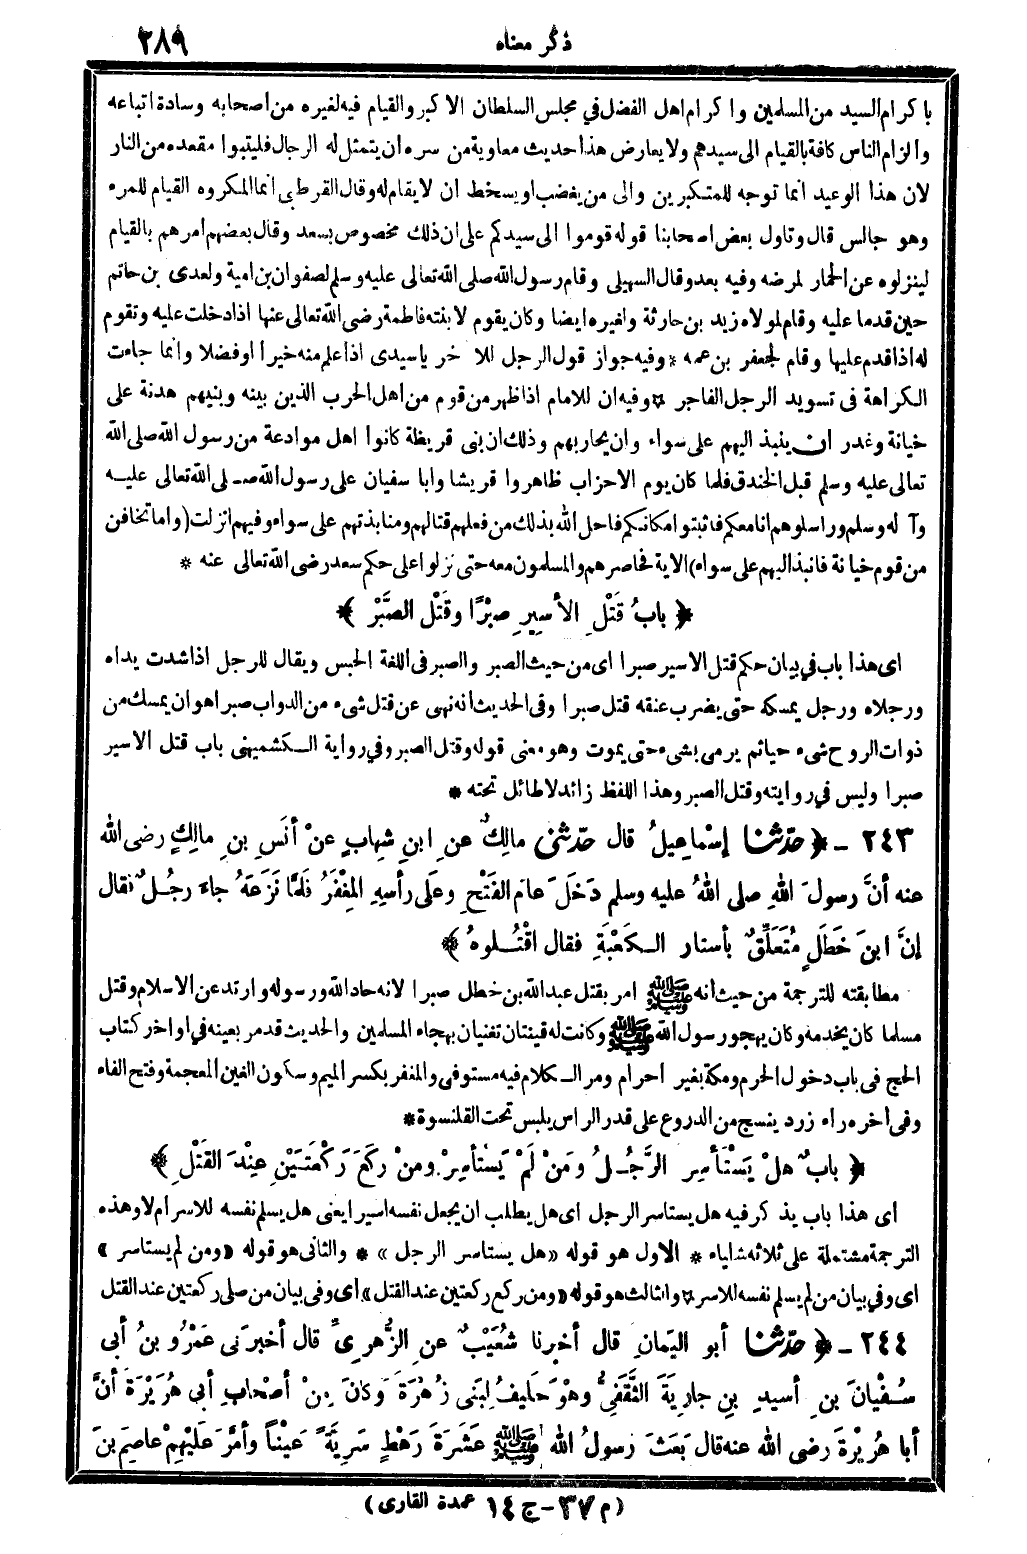 ذكر معناه ٢٨٩
باكرام السيد من المسلمين واكرام اهل الفضل في مجلس السلطان الاكبر والقيام فيه لغيره من اصحابه وسادة اتباعه
والزام الناس كافة بالقيام الى سيدهم ولا يعارض هذا حديث معاوية من سره ان يتمثل له الرجال فليتبوا مقعده من النار
لان هذا الوعيد انما توجه للمتكبرين والى من يغضب او يسخط ان لا يقام له وقال القرطبي انما المكروه القيام للمرء
وهو جالس قال وتاول بعض اصحابنا قوله قوموا الى سيدكم على ان ذلك مخصوص بسعد وقال بعضهم امرهم بالقيام
لينزلوه عن الحمار لمرضه وفيه بعد وقال السهيلي وقام رسول الله صلى الله تعالى عليه وسلم لصفوان بن امية ولعدى بن حاتم
حين قدما عليه وقام لمولاه زيد بن حارثة ولغيره ايضا وكان يقوم لابنته فاطمة رضى الله تعالى عنها اذا دخلت عليه وتقوم
له اذا قدم عليها وقام لجعفر بن عمه * وفيه جواز قول الرجل للآخر يا سيدى اذا علم منه خيرا او فضلا وانما جاءت
الكراهة فى تسويد الرجل الفاجر * وفيه ان للامام اذا ظهر من قوم من اهل الحرب الذين بينه وبنيهم هدنة على
خيانة وغدر ان ينبذ اليهم على سواء وان يحاربهم وذلك ان بنى قريظة كانوا اهل موادعة من رسول الله صلى الله
تعالى عليه وسلم قبل الخندق فلما كان يوم الاحزاب ظاهروا قريشا وابا سفيان على رسول الله صلى الله تعالى عليه
وآله وسلم وراسلوهم انا معكم فاثبتوا مكانكم فاحل الله بذلك من فعلهم قتالهم ومنابذتهم على سواء وفيهم انزلت (واما تخافن
من قوم خيانة فانبذ اليهم على سواء) الاية فحاصرهم والمسلمون معه حتى نزلوا على حكم سعد رضى الله تعالى عنه *
﴿ بابُ قَتْلِ الأسِيرِ صبْرًا وقَتْل الصَّبْر ﴾
اى هذا باب في بيان حكم قتل الاسير صبرا اى من حيث الصبر والصبر فى اللغة الحبس ويقال للرجل اذا شدت يداه
ورجلاه ورجل يمسكه حتى يضرب عنقه قتل صبرا وفى الحديث انه نهى عن قتل شىء من الدواب صبرا هو ان يمسك من
ذوات الروح شىء حياثم يرمى بشىء حتى يموت وهو معنى قوله وقتل الصبر وفي رواية الكشميهنى باب قتل الاسير
صبرا وليس في روايته وقتل الصبر وهذا اللفظ زائد لا طائل تحته *
٢٤٣ - ﴿ حدّثنا إسْماعِيلُ قال حدّثنى مالِكٌ عنِ ابنِ شِهابٍ عنْ أنَسِ بنِ مالِكٍ رضى الله
عنه أنَّ رسولَ اللهِ صلى اللهُ عليه وسلم دَخَلَ عامَ الفَتْحِ وعلَى رأسِهِ المِغْفَرُ فَلَمَّا نَزَعَهُ جاءَ رجُلٌ فقال
إنَّ ابنَ خَطَلٍ مُتَعَلِّقٌ بأستار الكَعْبَةِ فقال اقْتُلوهُ ﴾
مطابقته للترجمة من حيث انه ﷺ امر بقتل عبد الله بن خطل صبرا لانه حاد الله ورسوله وارتد عن الاسلام وقتل
مسلما كان يخدمه وكان يهجو رسول الله ﷺ وكانت له قينتان تغنيان بهجاء المسلمين والحديث قد مر بعينه في اواخر كتاب
الحج فى باب دخول الحرم ومكة بغير احرام ومر الكلام فيه مستوفى والمغفر بكسر الميم وسكون الغين المعجمة وفتح الفاء
وفى آخره راء زرد ينسج من الدروع على قدر الراس يلبس تحت القلنسوة *
﴿ بابٌ هلْ يَسْتَأسِر الرَّجُلُ ومَنْ لَمْ يَسْتَأسِرْ ومنْ ركَعَ رَكْعَتَيْنِ عِنْدَ القَتْلِ ﴾
اى هذا باب يذكر فيه هل يستاسر الرجل اى هل يطلب ان يجعل نفسه اسيرا يعنى هل يسلم نفسه للاسر ام لا وهذه
الترجمة مشتملة على ثلاثة اشياء * الاول هو قوله «هل يستاسر الرجل» * والثانى هو قوله «ومن لم يستاسر»
اى وفي بيان من لم يسلم نفسه للاسر * والثالث هو قوله «ومن ركع ركعتين عند القتل» اى وفى بيان من صلى ركعتين عند القتل
٢٤٤ - ﴿ حدّثنا أبو اليَمَانِ قال أخبرنا شُعَيْبٌ عنِ الزُّهرِىِّ قال أخبرَنى عَمْرُو بنُ أبى
سُفْيانَ بنِ أسيدِ بنِ جارِيَةَ الثَّقَفِىُّ وهْوَ حَلِيفٌ لِبَنى زُهْرَةَ وَكانَ مِنْ أصْحابِ أبى هُرَيْرَةَ أنَّ
أبا هُرَيْرةَ رضى الله عنه قال بَعَثَ رسولُ الله ﷺ عَشَرَةَ رَهْطٍ سَرِيَّةً عَيْناً وأمَّرَ عَلَيْهِمْ عاصِمَ بنَ
(م ٣٧ - ج ١٤ عمدة القارى)